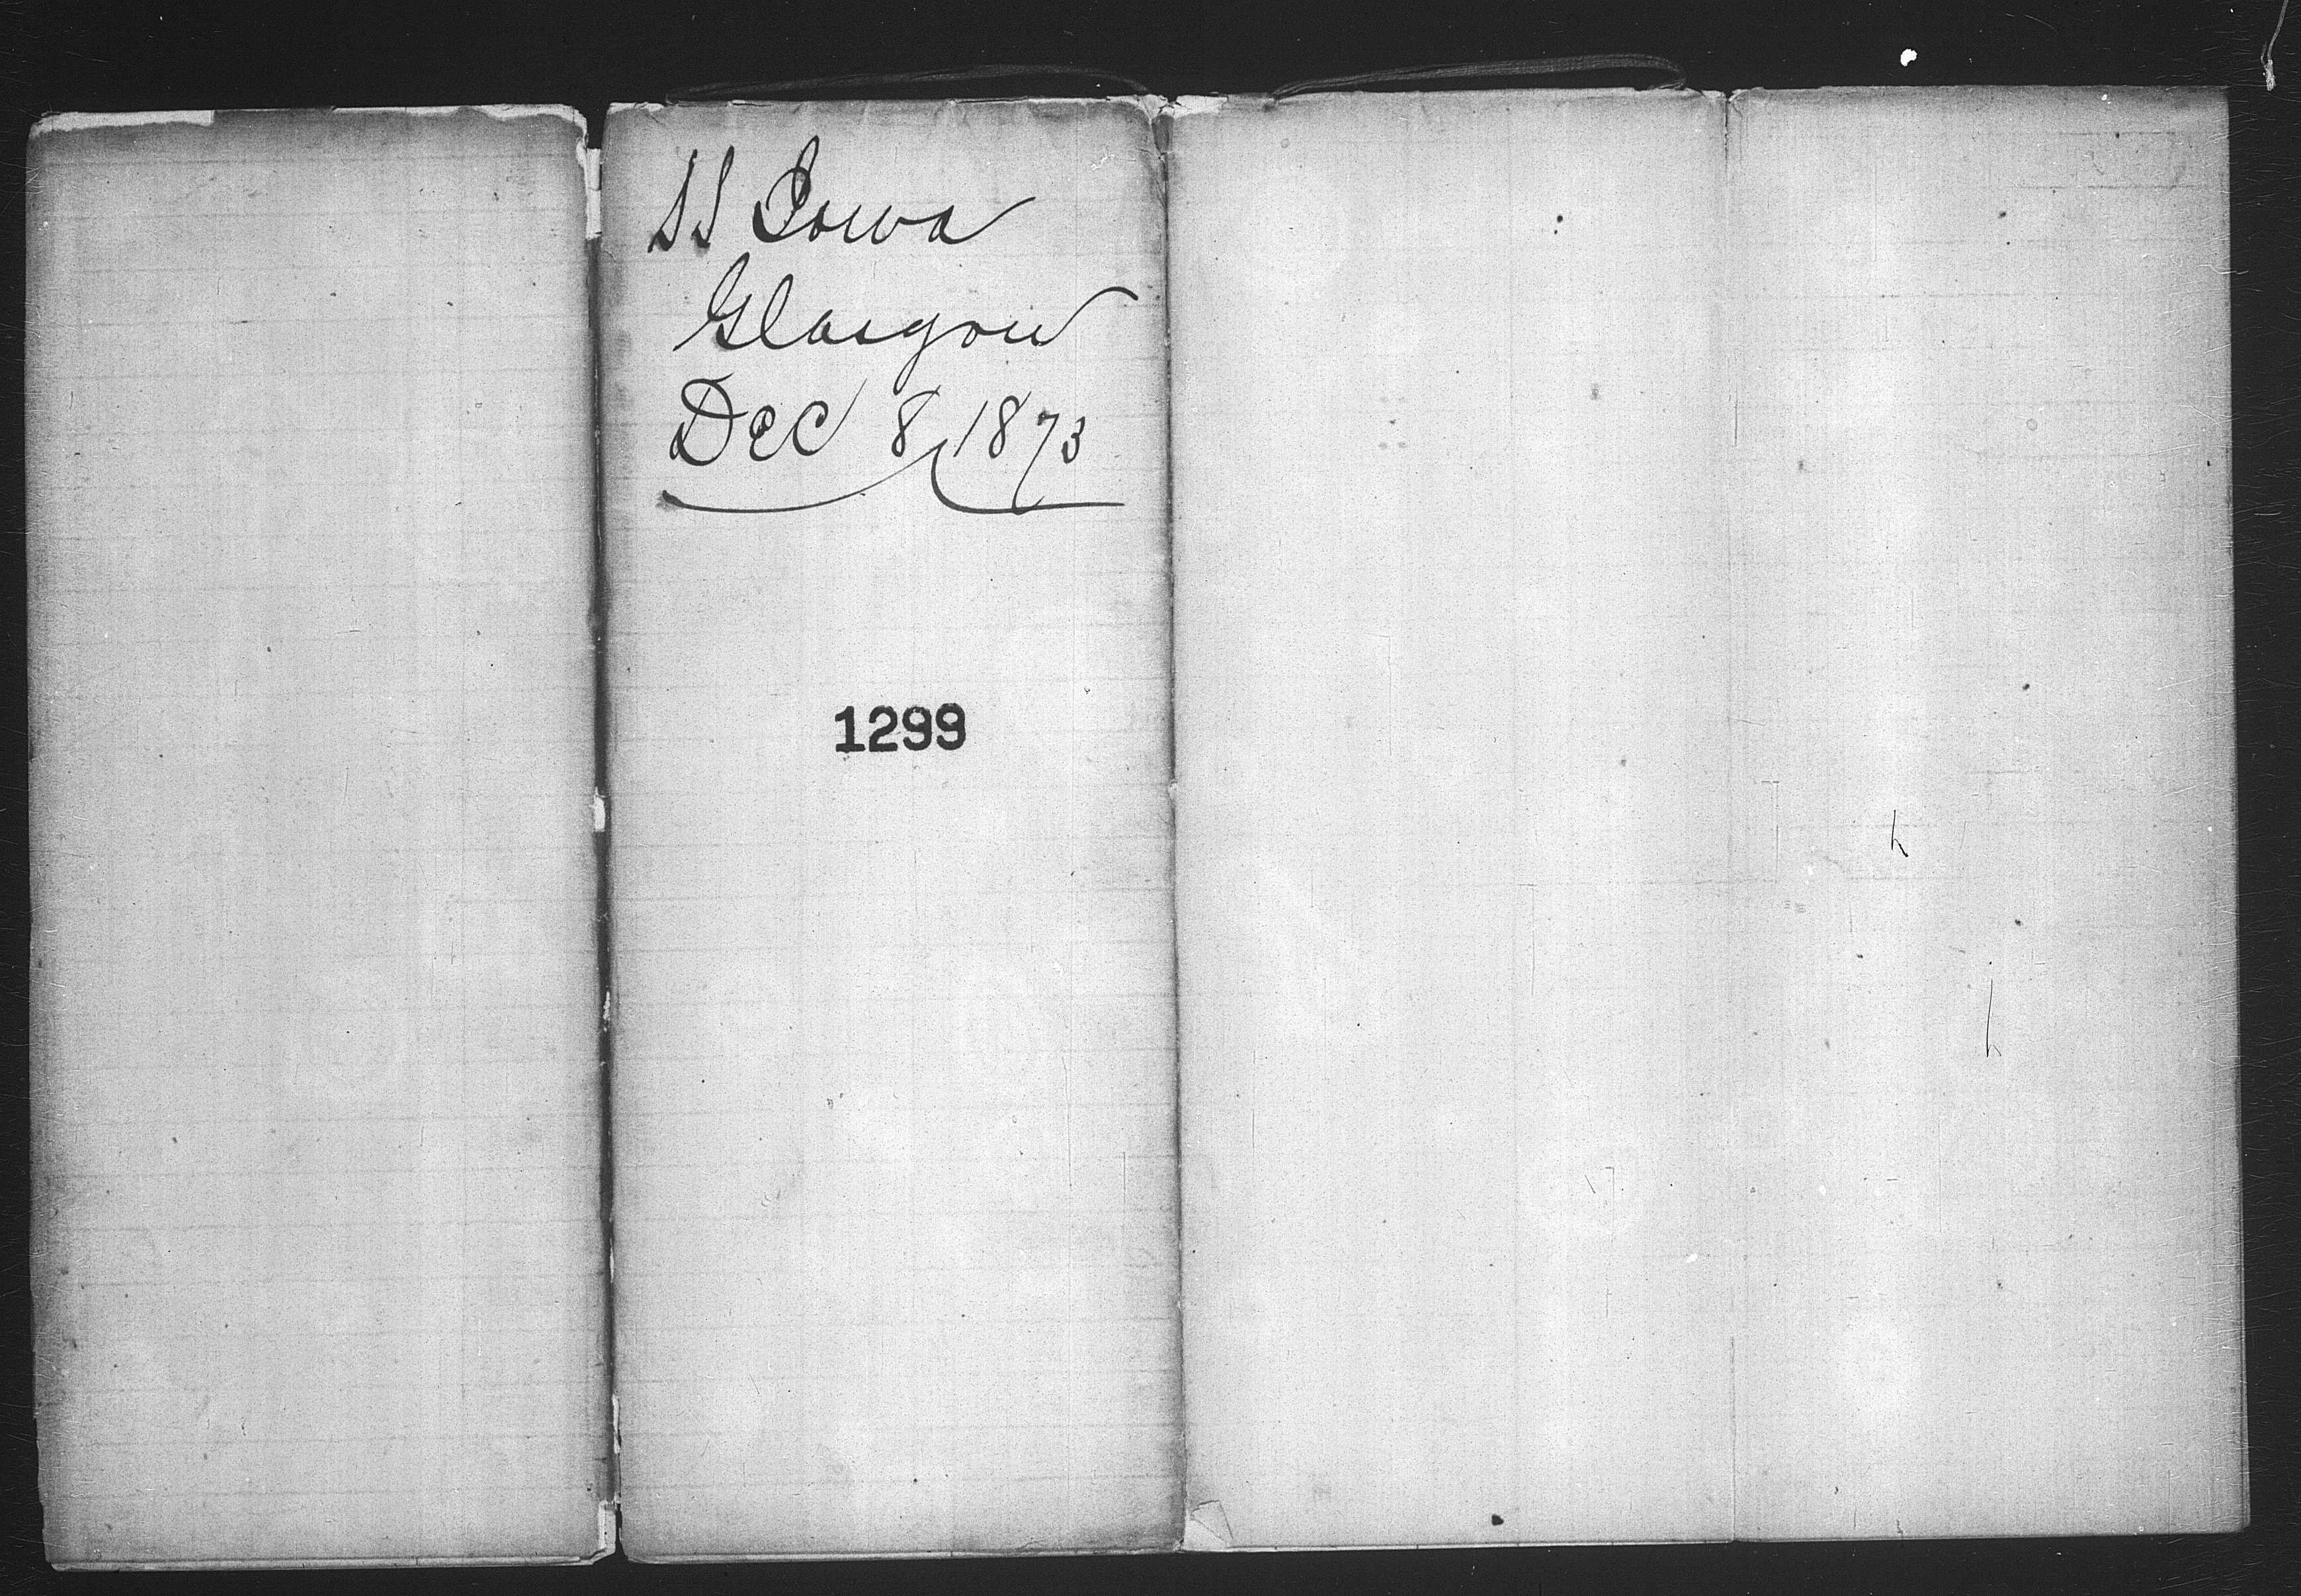 SS Iowa
Glasgow
Dec 8, 1873
1299